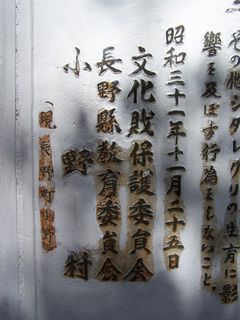 その他シダレグリの生育に影
響を及ぼす行為をしないこと。
昭和三十一年十一月二十五日
文化財保護委員会
長野縣教育委員会
小野村